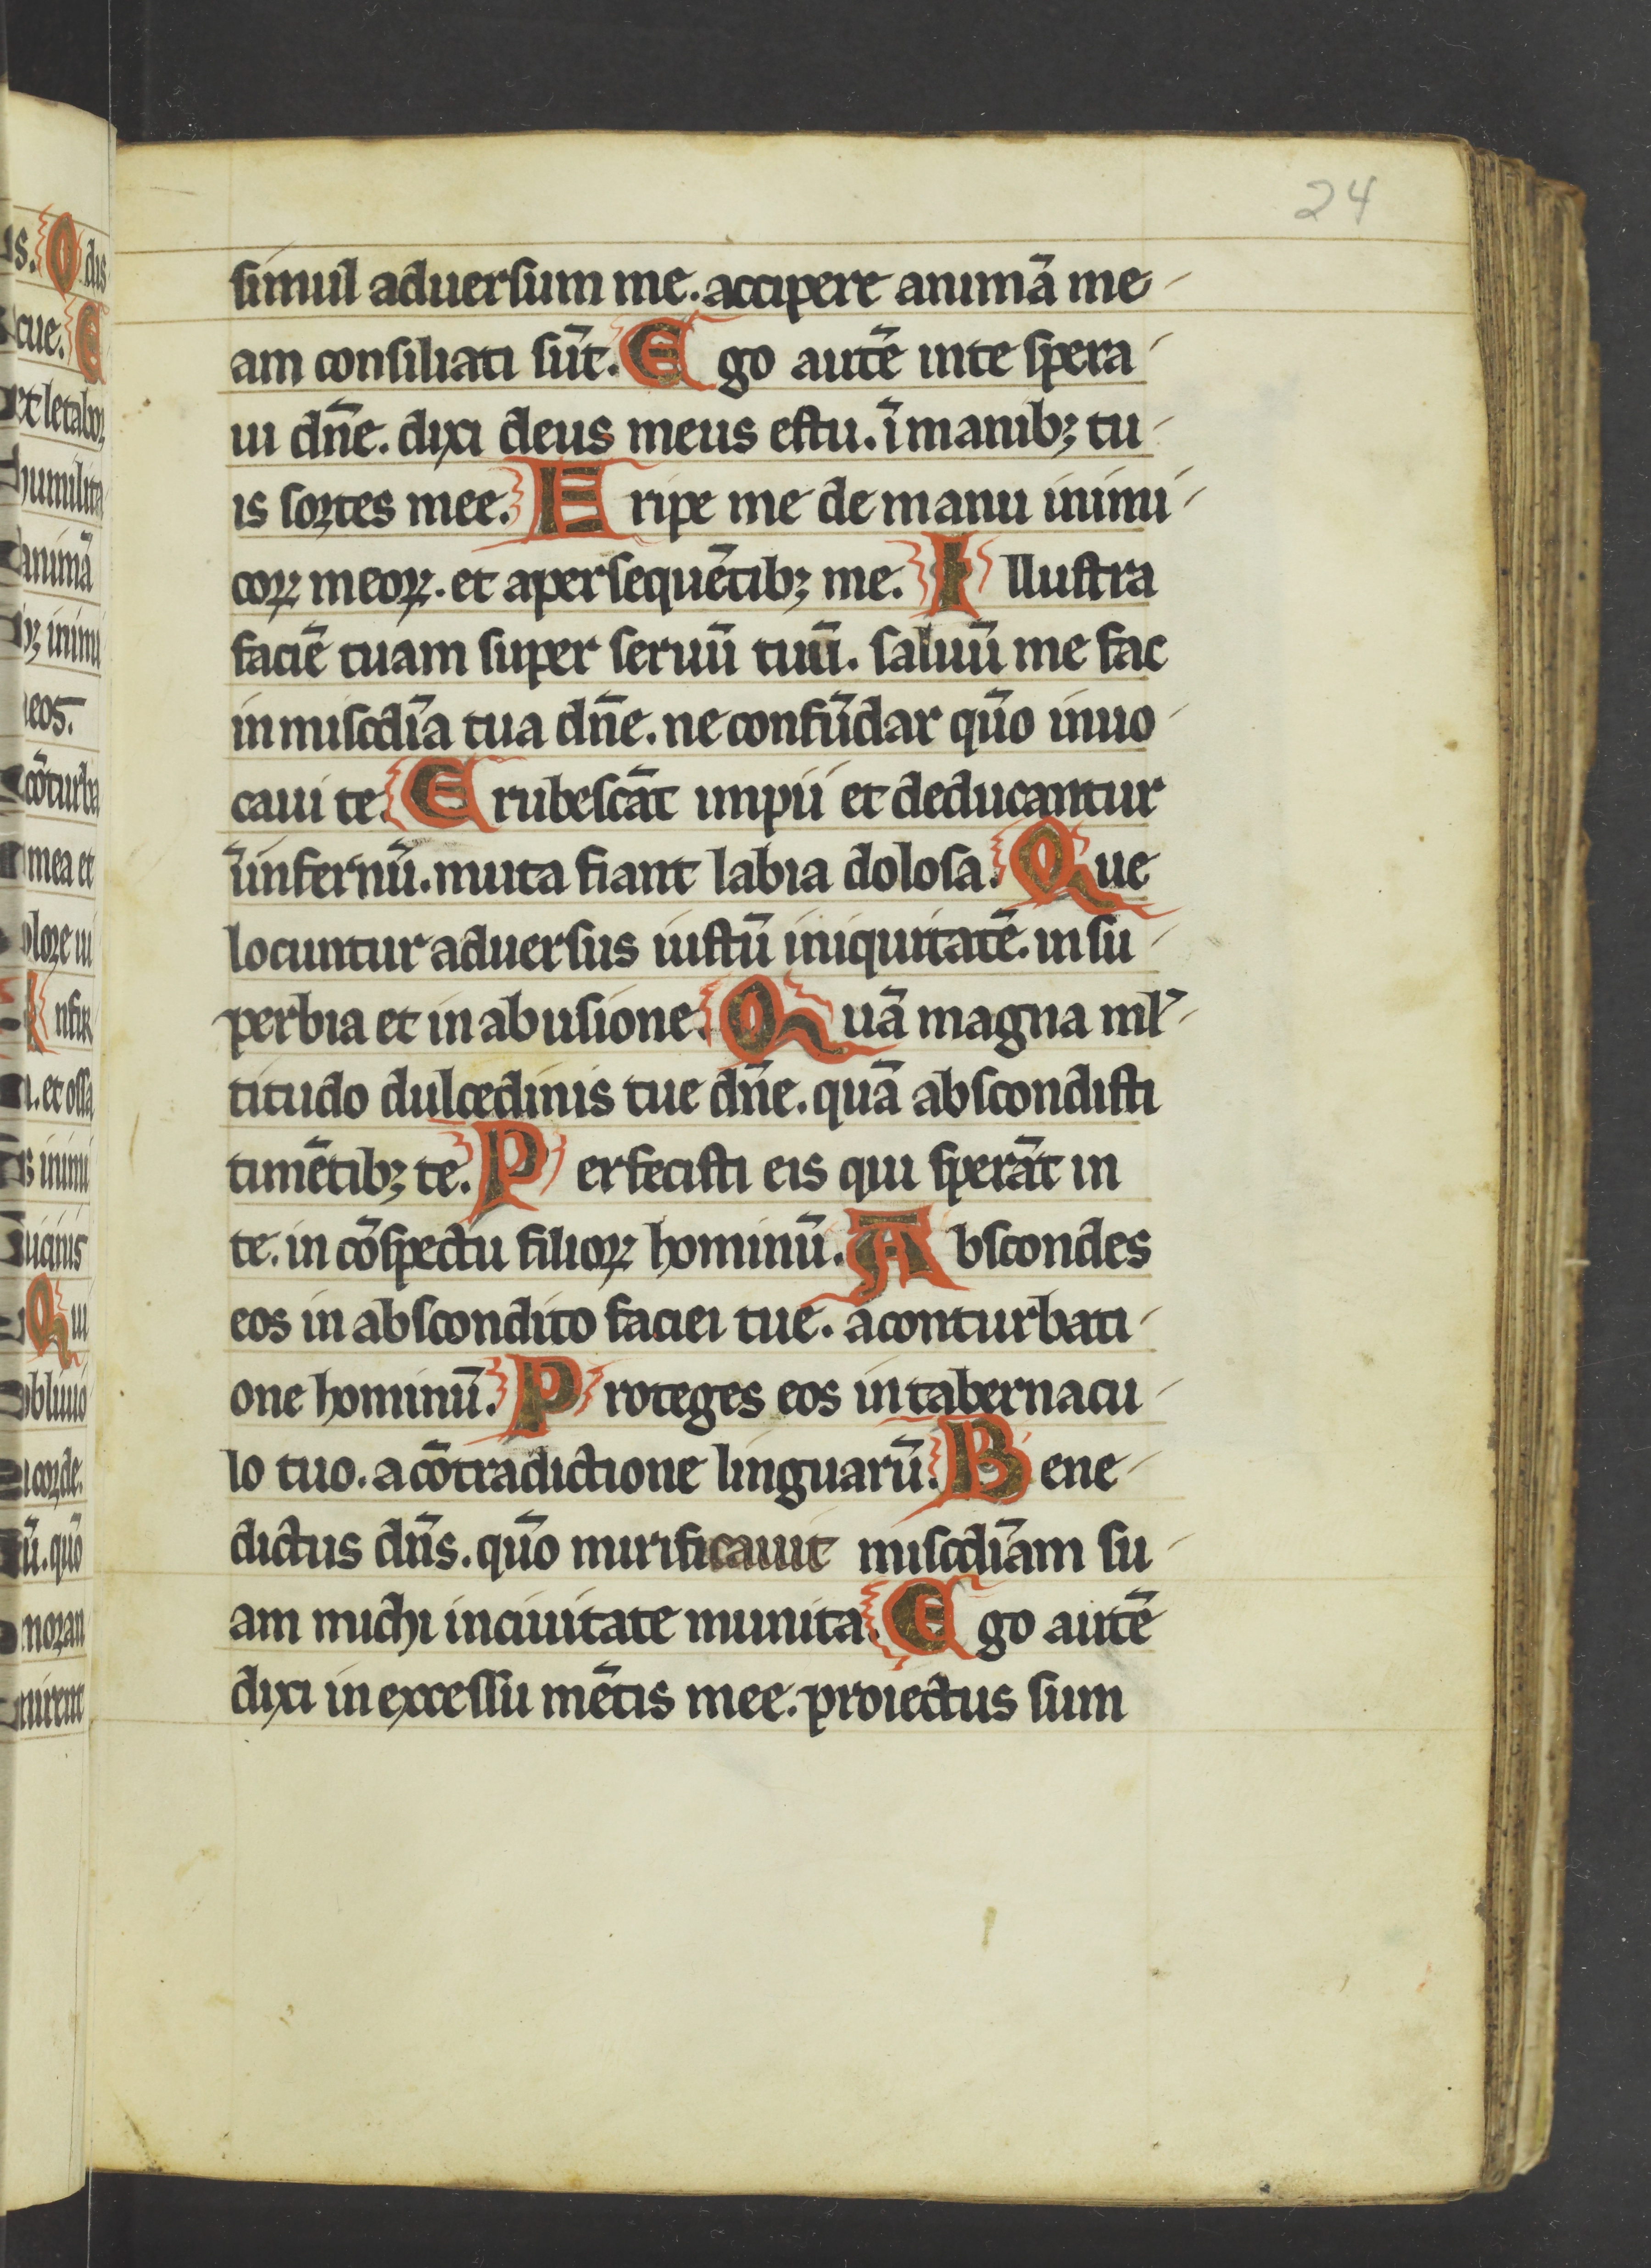 24
simul aduersum me. accipere animā me-
am consiliati sūt. Ego autē inte spera-
ui dñe. dixi deus meus es tu. ī manibꝫ tu-
is sortes mee. Eripe me de manu inimi-
coꝝ meoꝝ. et a persequētibꝫ me. Illustra
faciē tuam super seruū tuū. saluū me fac
in miscdīa tua dñe. ne confūdar qūo inuo-
caui te. Erubescāt impii et deducantur
īinfernū. muta fiant labia dolosa. Que
locuntur aduersus iustū iniquitatē. in su-
perbia et in abusione. Quā magna ml̓-
titudo dulcedinis tue dñe. quā abscondisti
timētibꝫ te. Perfecisti eis qui sperāt in
te. in cōspectu filioꝝ hominū. Abscondes
eos in abscondito faciei tue. a conturbati-
one hominū. Proteges eos in tabernacu-
lo tuo. a cōtradictione linguarū. Bene-
dictus dñs. qūo mirificauit miscdīam su-
am michi in ciuitate munita. Ego autē
dixi in excessu mētis mee. proiectus sum